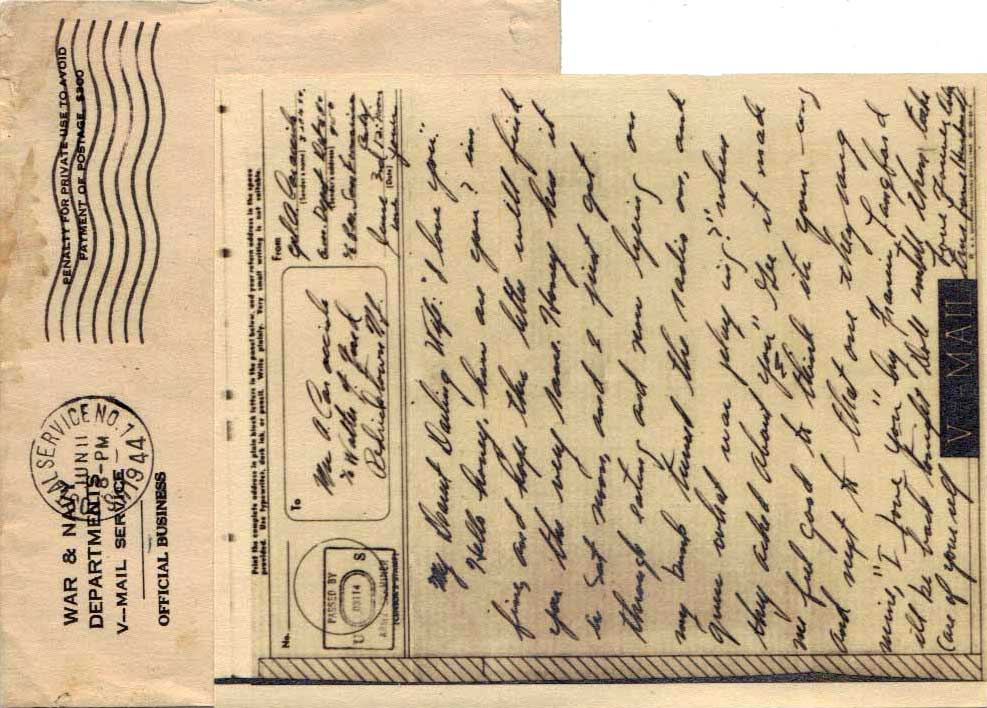 PENALTY FOR PRIVATE USE TO AVOID
PAYMENT OF POSTAGE, $300
WAR & NAVY
DEPARTMENTS
V-MAIL SERVICE
OFFICIAL BUSINESS
POSTAL SERVICE NO. 1
JUN 11
8-PM
1944
Print the complete address in plain block letters in the panel below, and your return address in the space
provided. Use typewriter, dark ink, or pencil. Write plainly. Very small writing is not suitable.
No.
To
From
(Sender's name)
(Sender's address)
(Date)
PASSED BY
U S
ARMY EXAMINER
(CENSOR'S STAMP)
My Dearest Darling Wife: "I love you."
Hello honey, how are you? im
fine and hope this letter will find
you the very same. Honey here it
is Sat noon, and I just got
through eating and now lying on
my bunk turned the radio on, and
guess what was playing?" when
they asked about you" Gee it made
me feel good to think its your song
and next to that one they sang
mine, "I love you" by Francis Langford
ill be back tonight Will write then, take
Care of yourself Love Forever,
Husband
V-MAIL